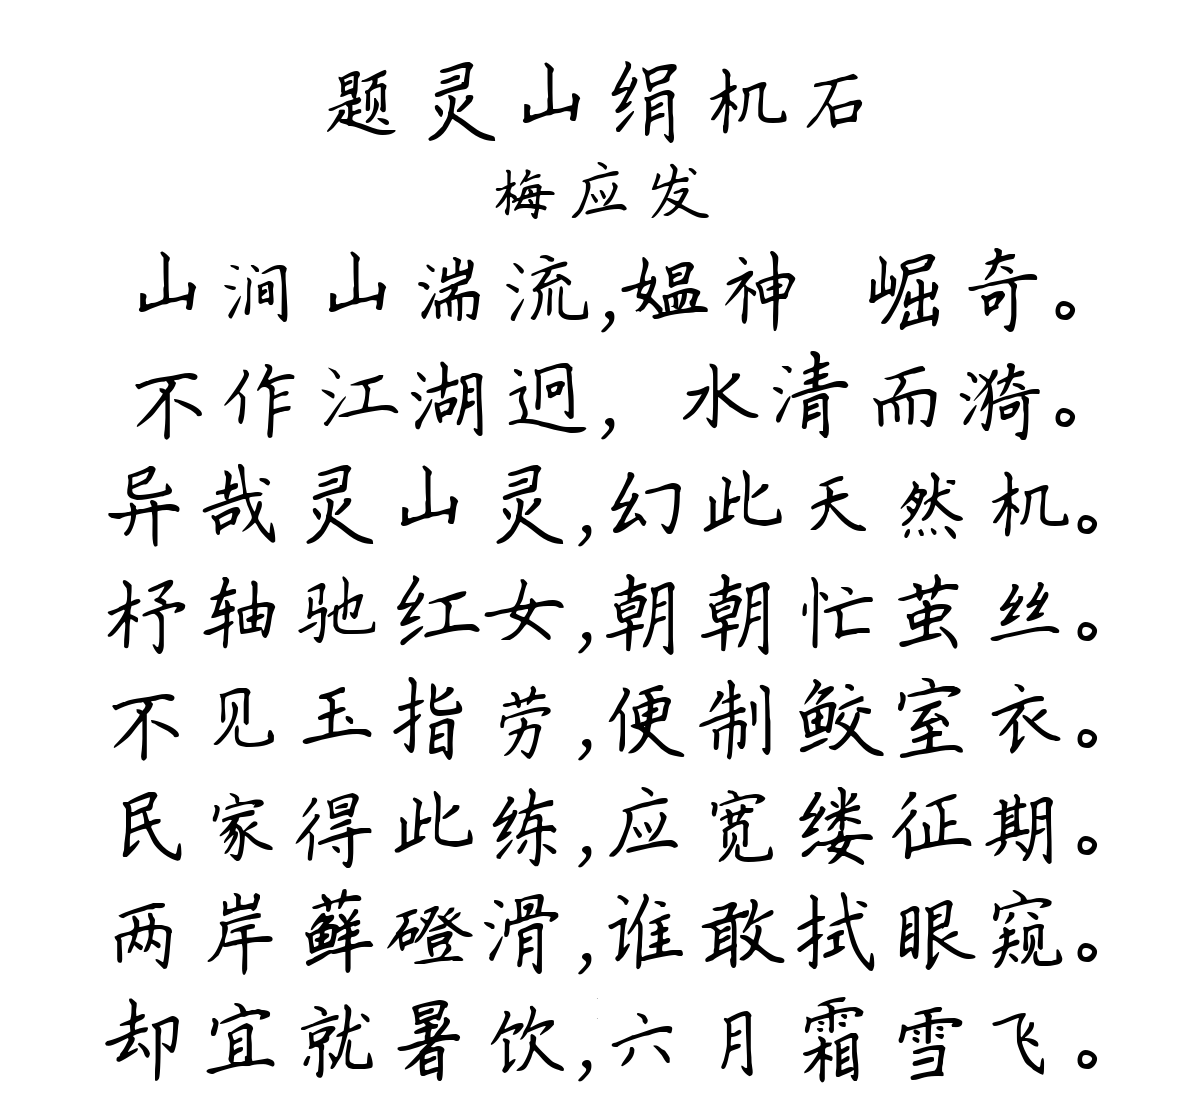 题灵山绢机石
梅应发
山涧山湍流,媪神 崛奇。
不作江湖迥, 水清而漪。
异哉灵山灵,幻此天然机。
杼轴驰红女,朝朝忙茧丝。
不见玉指劳,便制鲛室衣。
民家得此练,应宽缕征期。
两岸藓磴滑,谁敢拭眼窥。
却宜就暑饮,六月霜雪飞。